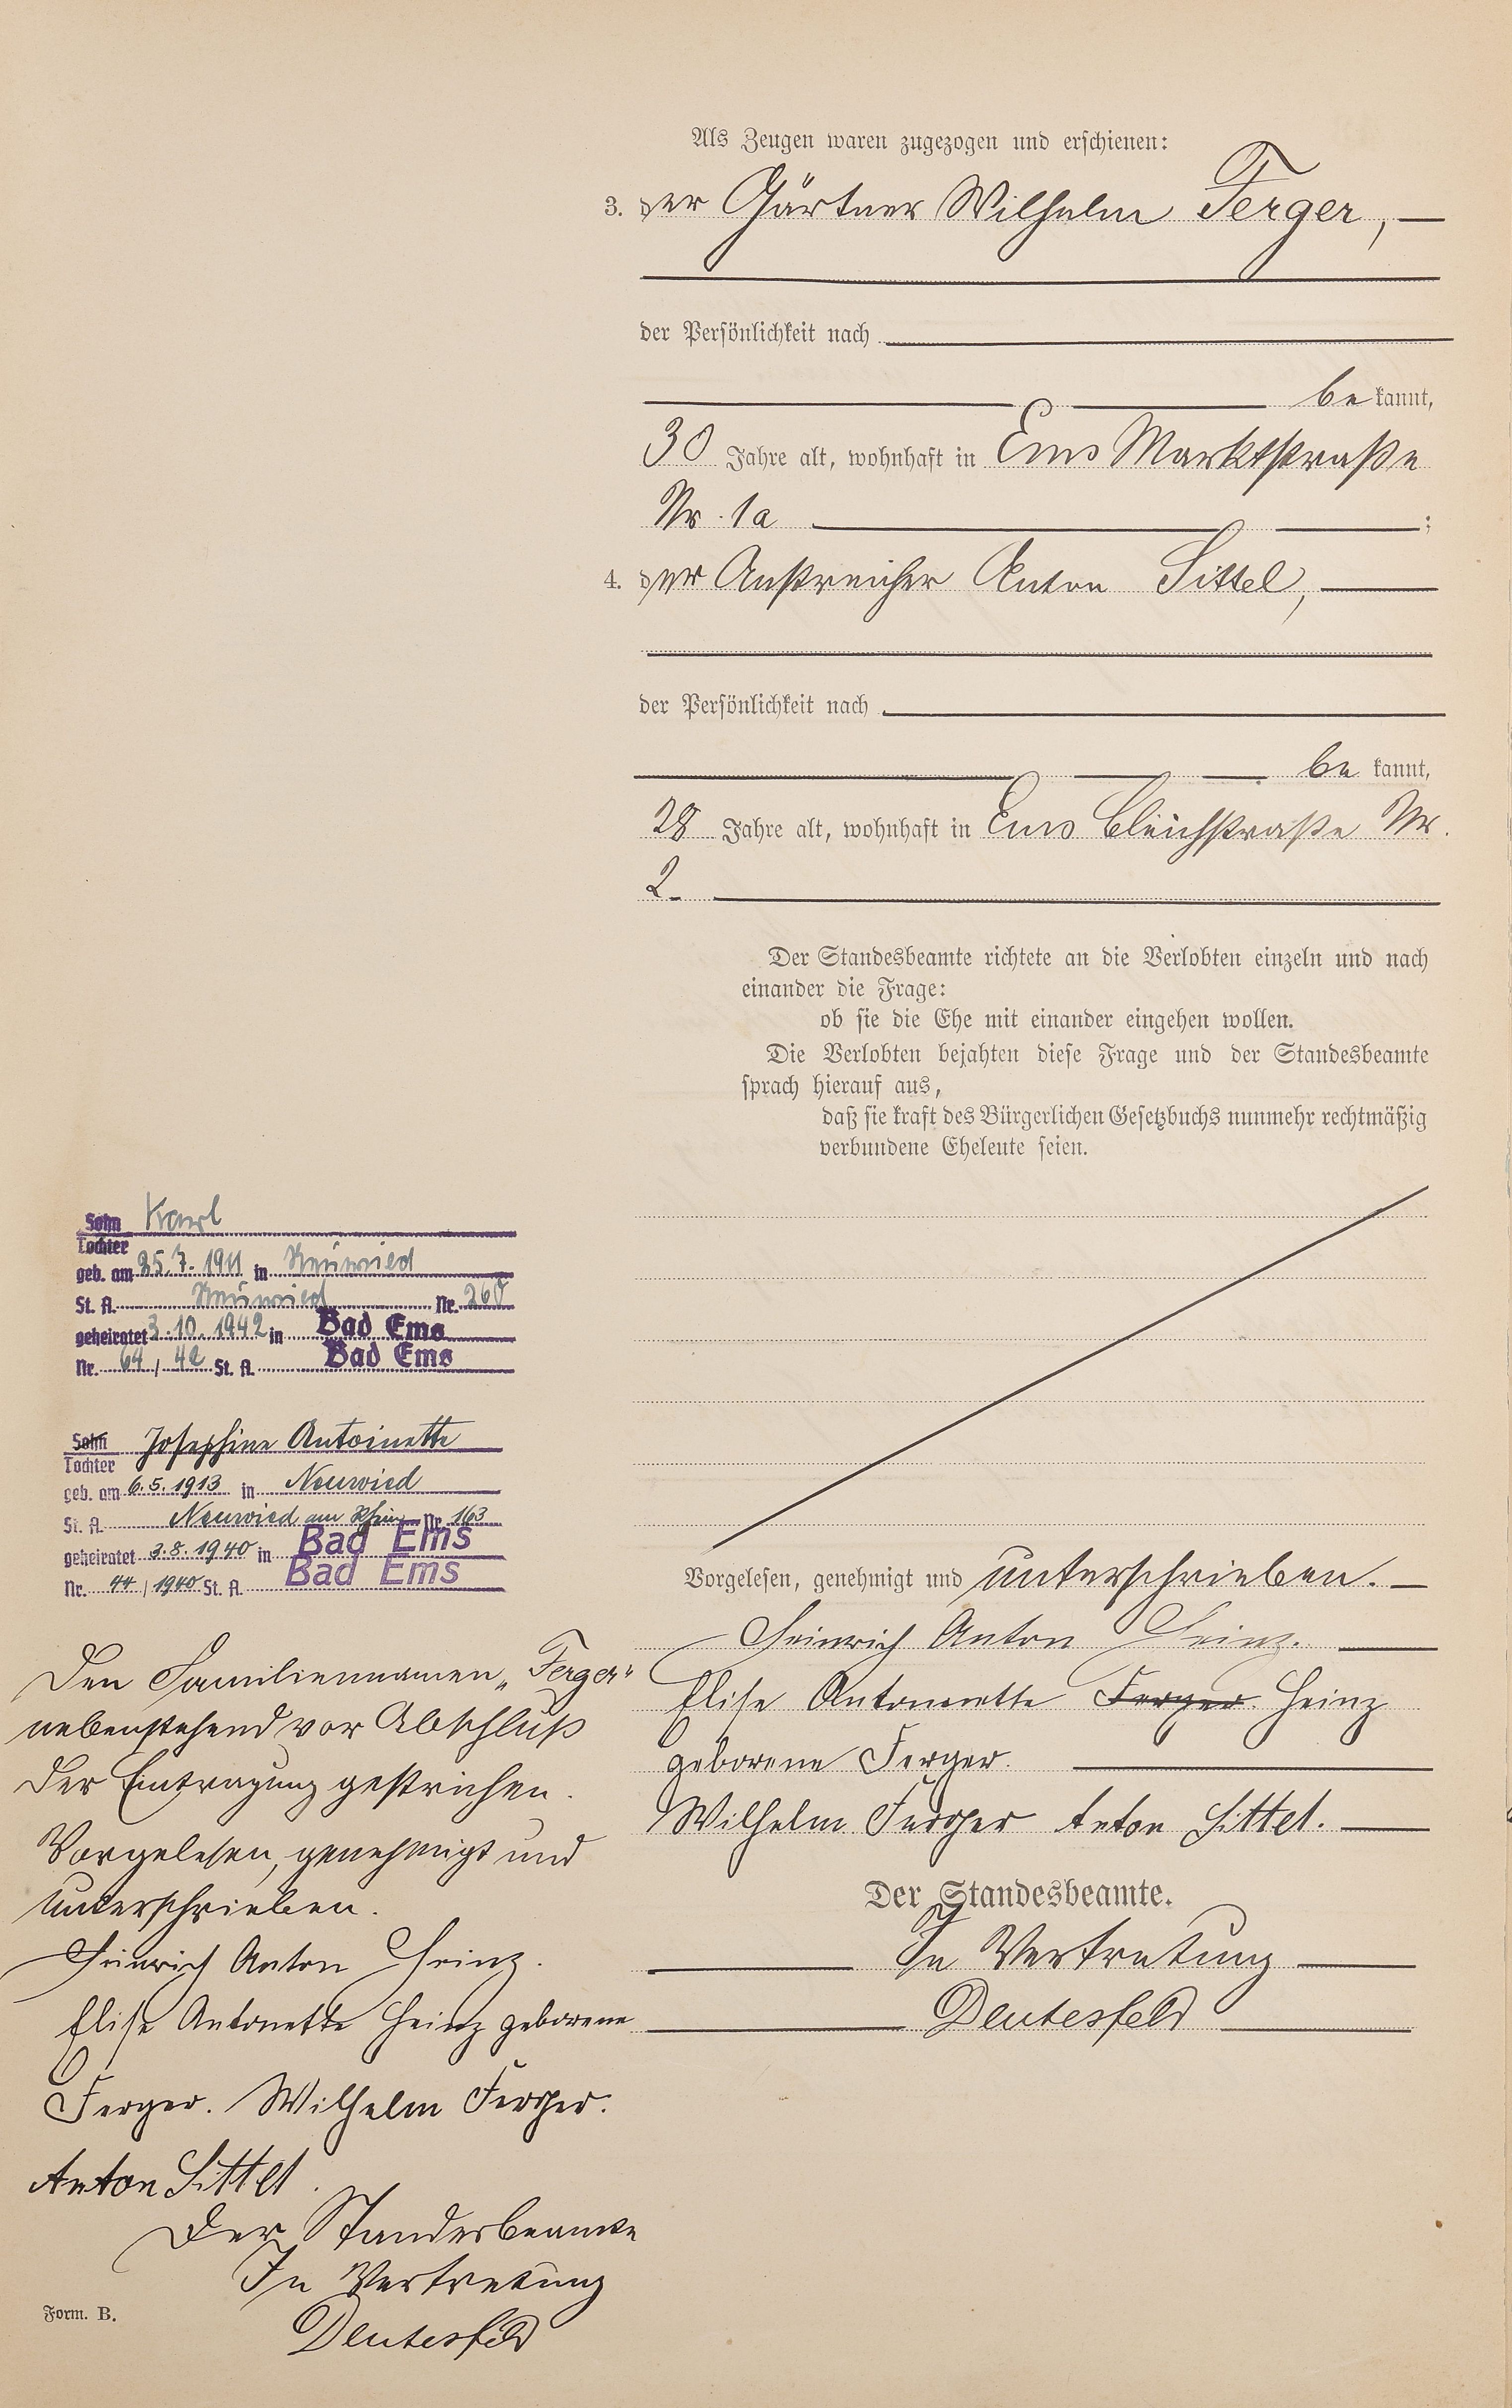 Als Zeugen waren zugezogen und erschienen:
3. der Gärtner Wilhelm Ferger,
der Persönlichkeit nach
be kannt,
30 Jahre alt, wohnhaft in Ems Marktstraße
Nr. 1a ;
4. der Anstreicher Anton Sittel,
der Persönlichkeit nach
be kannt,
28 Jahre alt, wohnhaft in Ems Bleichstraße Nr.
2.
Der Standesbeamte richtete an die Verlobten einzeln und nach
einander die Frage:
ob sie die Ehe mit einander eingehen wollen.
Die Verlobten bejahten diese Frage und der Standesbeamte
sprach hierauf aus,
daß sie kraft des Bürgerlichen Gesetzbuchs nunmehr rechtmäßig
verbundene Eheleute seien.
Vorgelesen, genehmigt und unterschrieben.
Heinrich Anton Heinz.
Elise Antonette Ferger Heinz
geborene Ferger.
Wilhelm Ferger Anton Sittel.
Der Standesbeamte.
In Vertretung
Deutesfeld
Sohn Karl
Tochter
geb. am 25.7.1911 in Neuwied
St. A. Neuwied Nr. 260
geheiratet 3.10.1942 in Bad Ems
Nr. 64 / 42 St. A. Bad Ems
Sohn Josephine Antoinette
Tochter
geb. am 6.5.1913 in Neuwied
St. A. Neuwied am Rhein Nr. 163
geheiratet 3.8.1940 in Bad Ems
Nr. 44 / 1940 St. A. Bad Ems
Den Familiennamen „Ferger“
nebenstehend vor Abschluß
der Eintragung gestrichen.
Vorgelesen, genehmigt und
unterschrieben.
Heinrich Anton Heinz.
Elise Antonette Heinz geborene
Ferger. Wilhelm Ferger.
Anton Sittel.
Der Standesbeamte
In Vertretung
Deutesfeld
Form. B.